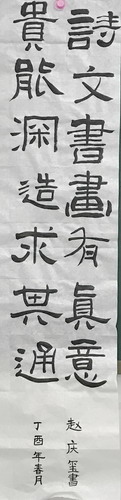 詩文書畫有眞意
貴能深造求其通
赵庆玺書
丁酉年春月